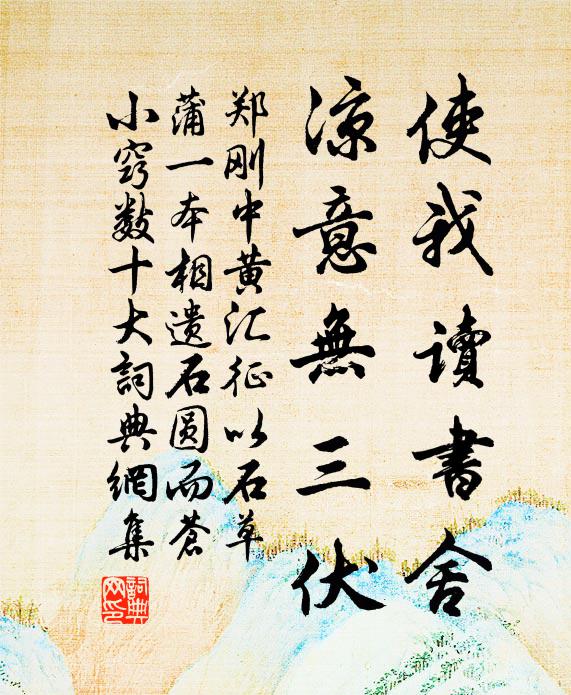 使我读書舍
凉意無三伏
郑刚中黄汇征以石草
蒲一本相遗石圆而苍
小窍数十大词典網集
詞典
网印